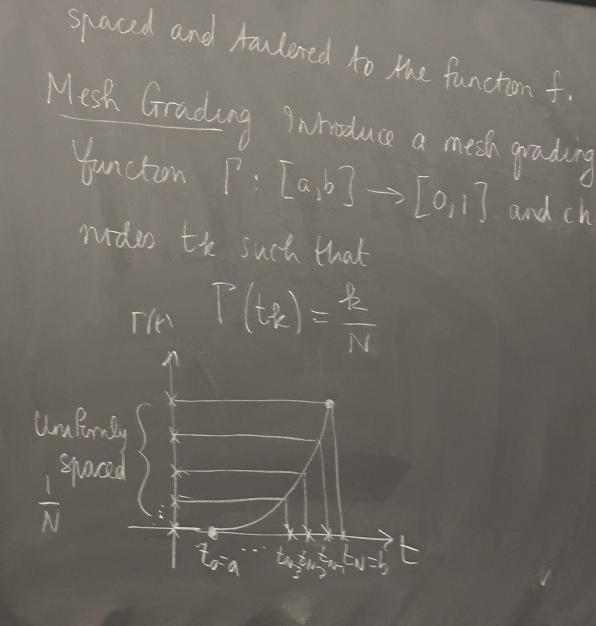 spaced and taulered to the function f.
Mesh Grading Introduce a mesh grading
function Γ : [a,b] → [0,1] and ch
nodes tk such that
Γ(tk) = k/N
Γ(t)
Uniformly
spaced
1/N
t
t₀=a ... tN=b